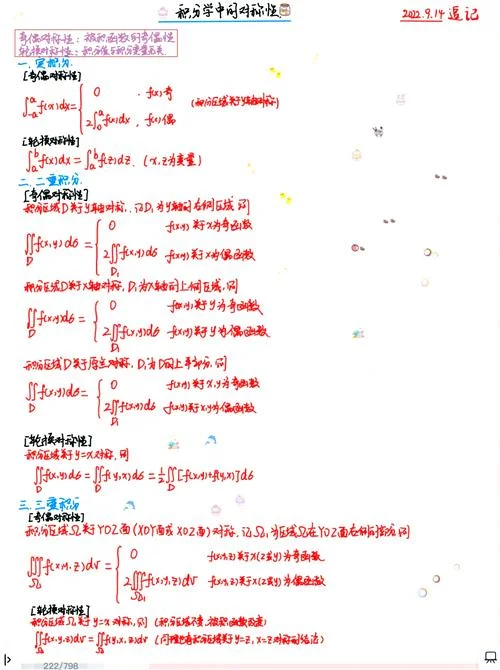 积分学中的对称性.
2022.9.14 追记
奇偶对称性: 被积函数的奇偶性
轮换对称性: 积分值与积分变量无关.
一. 定积分.
[奇偶对称性]
∫₋ₐᵃ f(x)dx = { 0 , f(x)奇
2∫₀ᵃ f(x)dx , f(x)偶
(积分区域关于y轴对称)
[轮换对称性]
∫ₐᵇ f(x)dx = ∫ₐᵇ f(z)dz. (x,z为变量)
二. 二重积分.
[奇偶对称性]
积分区域D关于y轴对称, 记D₁为y轴的右侧区域 则
∬_D f(x,y)dσ = { 0 f(x,y)关于x为奇函数
2∬_D₁ f(x,y)dσ f(x,y)关于x为偶函数
积分区域D关于x轴对称, D₁为x轴的上侧区域, 则
∬_D f(x,y)dσ = { 0 f(x,y)关于y为奇函数
2∬_D₁ f(x,y)dσ f(x,y)关于y为偶函数
积分区域D关于原点对称, D₁为D的上半部分, 则
∬_D f(x,y)dσ = { 0 f(x,y)关于x,y为奇函数
2∬_D₁ f(x,y)dσ f(x,y)关于x,y为偶函数
[轮换对称性]
积分区域关于y=x对称, 则
∬_D f(x,y)dσ = ∬_D f(y,x)dσ = ½∬_D [f(x,y)+f(y,x)]dσ
三. 三重积分
[奇偶对称性]
积分区域Ω关于YOZ面(XOY面或XOZ面)对称, 记Ω₁为区域Ω在YOZ面右侧的部分 则
∭_Ω f(x,y,z)dv = { 0 f(x,y,z)关于x(z或y)为奇函数
2∭_Ω₁ f(x,y,z)dv f(x,y,z)关于x(z或y)为偶函数
[轮换对称性]
积分区域Ω关于y=x对称, 则 (积分区域不变, 被积函数
∭_Ω f(x,y,z)dv = ∭_Ω f(y,x,z)dv (同理也有积分域关于y=z, x=z对称的结论)
222/798